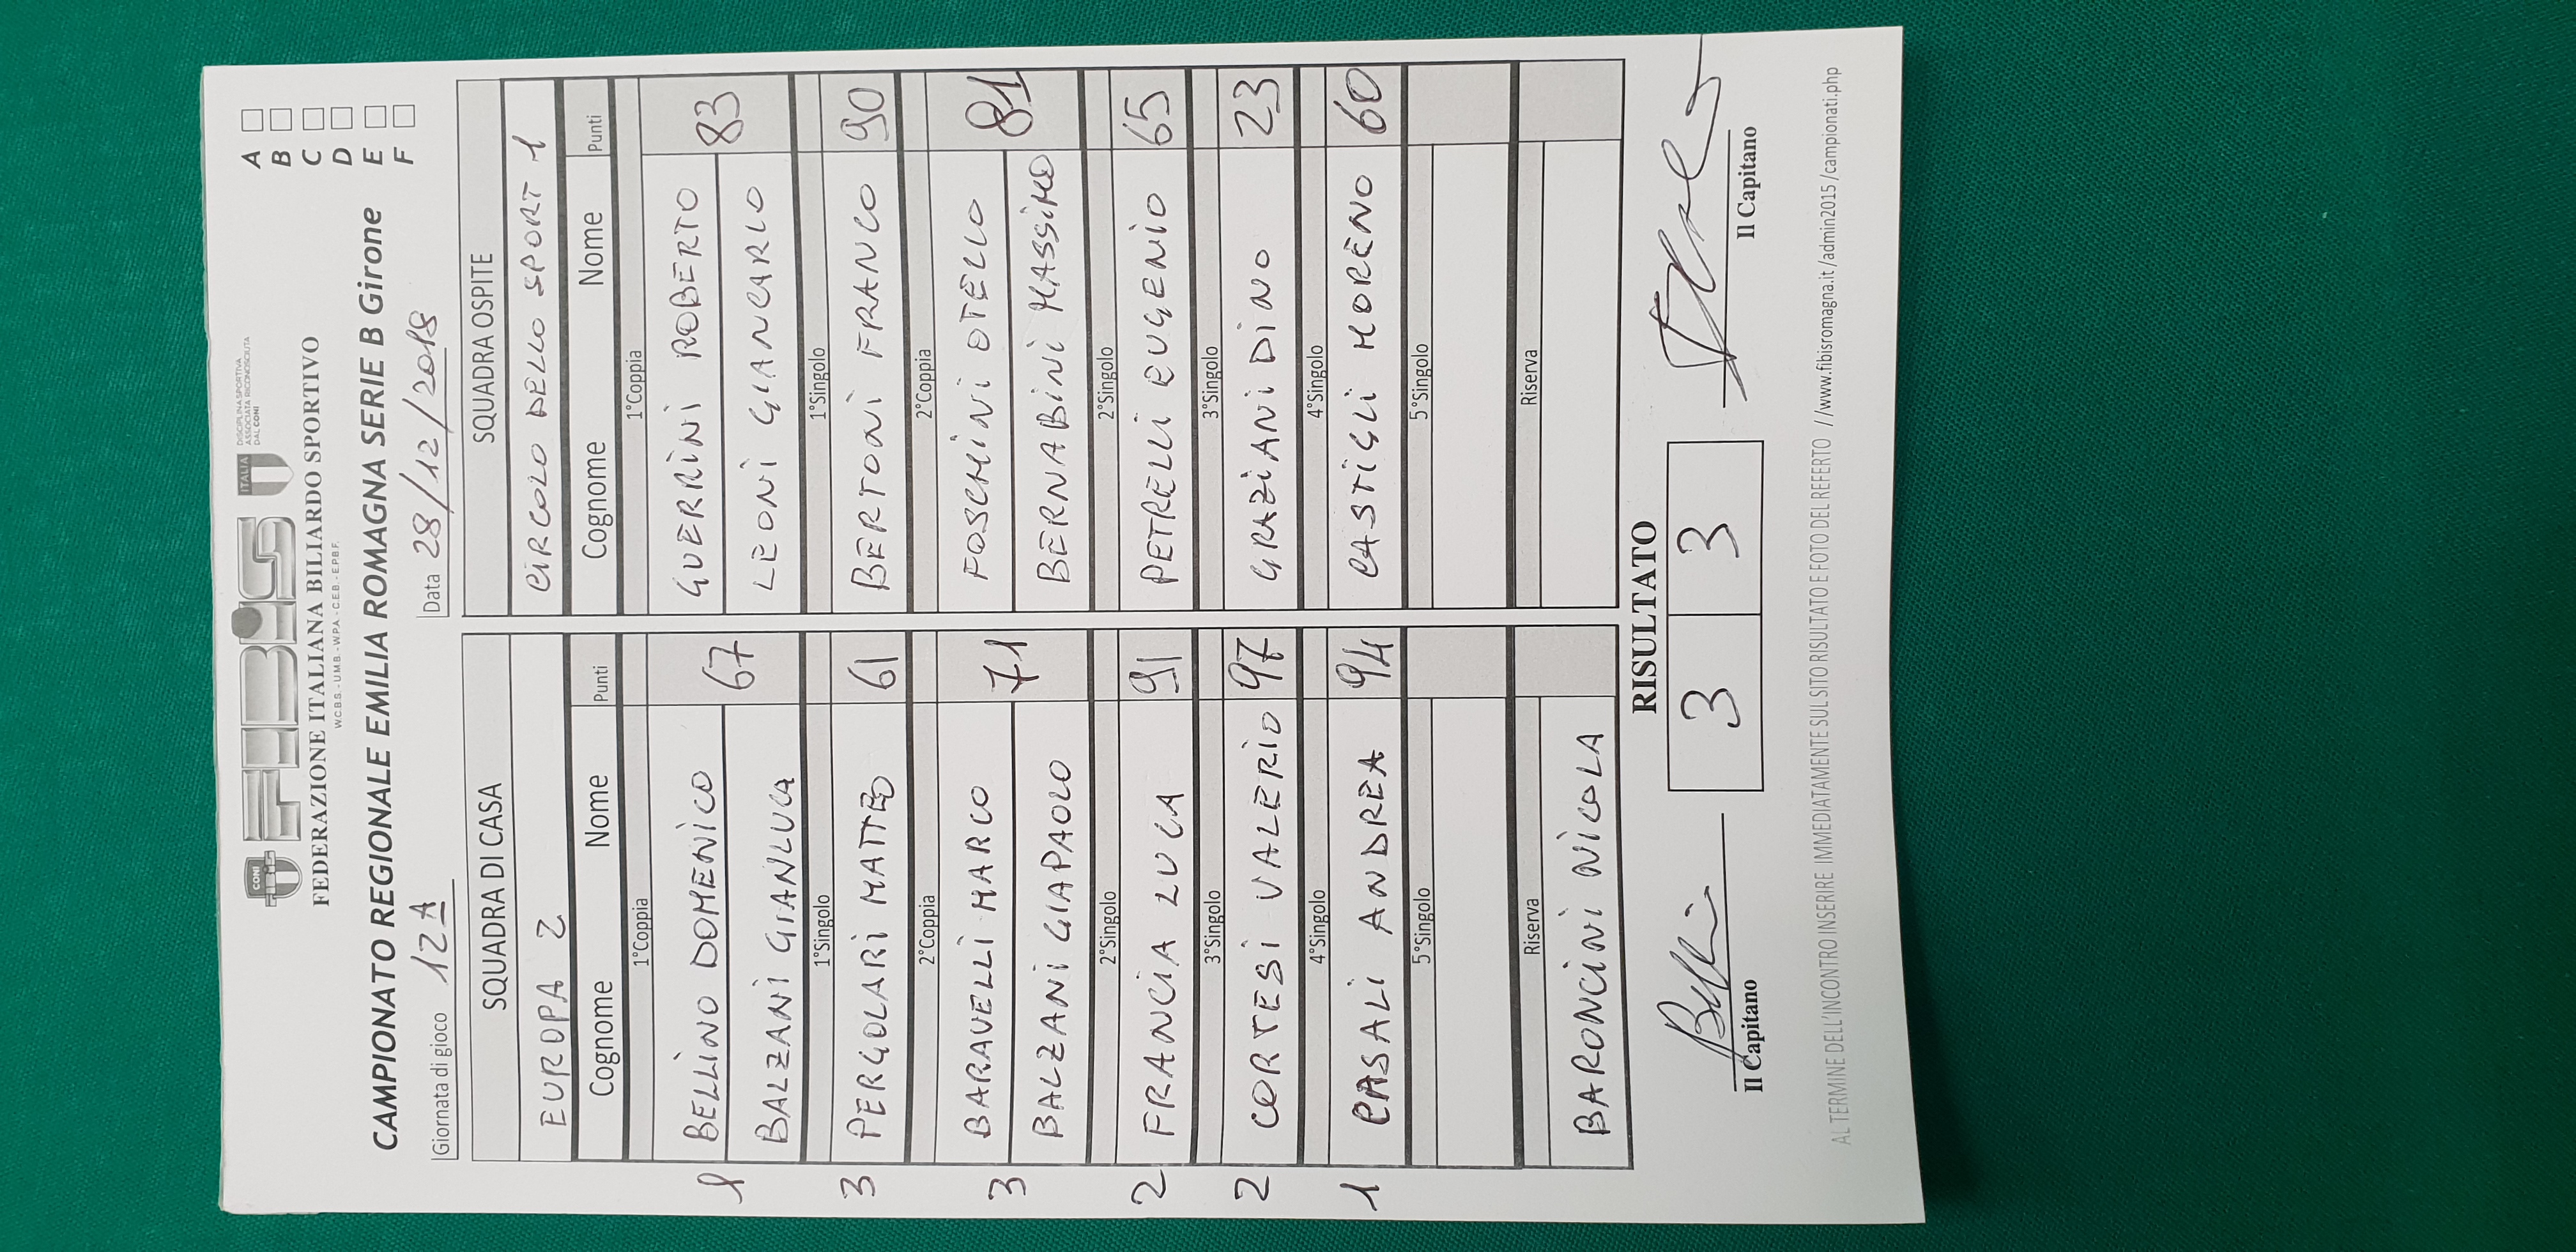 CONI FIBiS ITALIA DISCIPLINA SPORTIVA
ASSOCIATA RICONOSCIUTA
DAL CONI
FEDERAZIONE ITALIANA BILIARDO SPORTIVO
W.C.B.S. - U.M.B. - W.P.A. - C.E.B. - E.P.B.F.
CAMPIONATO REGIONALE EMILIA ROMAGNA SERIE B Girone
A
B
C
D
E
F
Giornata di gioco 12 A Data 28/12/2018
SQUADRA DI CASA SQUADRA OSPITE
EUROPA 2 CIRCOLO DELLO SPORT 1
Cognome Nome Punti Cognome Nome Punti
1°Coppia 1°Coppia
1 BELLINO DOMENICO 67 GUERRINI ROBERTO 83
BALZANI GIANLUCA LEONI GIANCARLO
1°Singolo 1°Singolo
3 PERGOLARI MATTEO 61 BERTONI FRANCO 90
2°Coppia 2°Coppia
3 BARAVELLI MARCO 71 FOSCHINI OTELLO 81
BALZANI GIAPAOLO BERNABINI MASSIMO
2°Singolo 2°Singolo
2 FRANCIA LUCA 91 PETRELLI EUGENIO 65
3°Singolo 3°Singolo
2 CORTESI VALERIO 97 GRAZIANI DINO 23
4°Singolo 4°Singolo
1 CASALI ANDREA 94 CASTIGLI MORENO 60
5°Singolo 5°Singolo
Riserva Riserva
BARONCINI NICOLA
RISULTATO
3 3
Il Capitano Il Capitano
AL TERMINE DELL'INCONTRO INSERIRE IMMEDIATAMENTE SUL SITO RISULTATO E FOTO DEL REFERTO //www.fibisromagna.it/admin2015/campionati.php